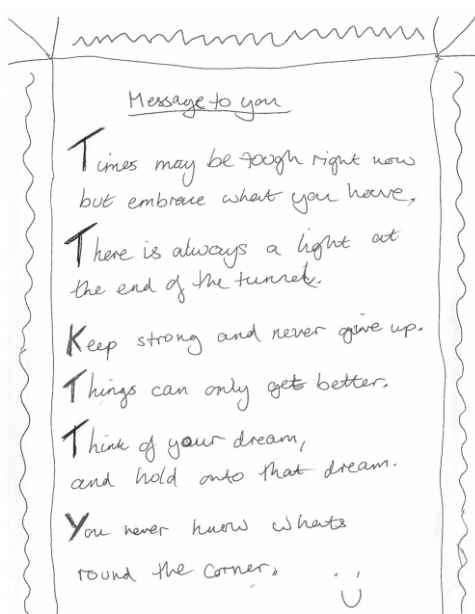 Message to you
Times may be tough right now
but embrace what you have,
There is always a light at
the end of the tunnel.
Keep strong and never give up.
Things can only get better.
Think of your dream,
and hold onto that dream.
You never know whats
round the corner. :)